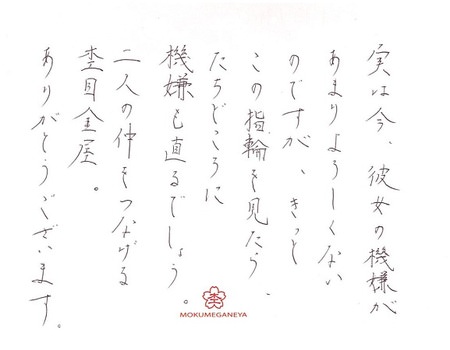 実は今、彼女の機嫌が
あまりよろしくない
のですが、きっと
この指輪を見たら、
たちどころに
機嫌も直るでしょう。
二人の仲をつなげる
杢目金屋。
ありがとうございます。
MOKUMEGANEYA